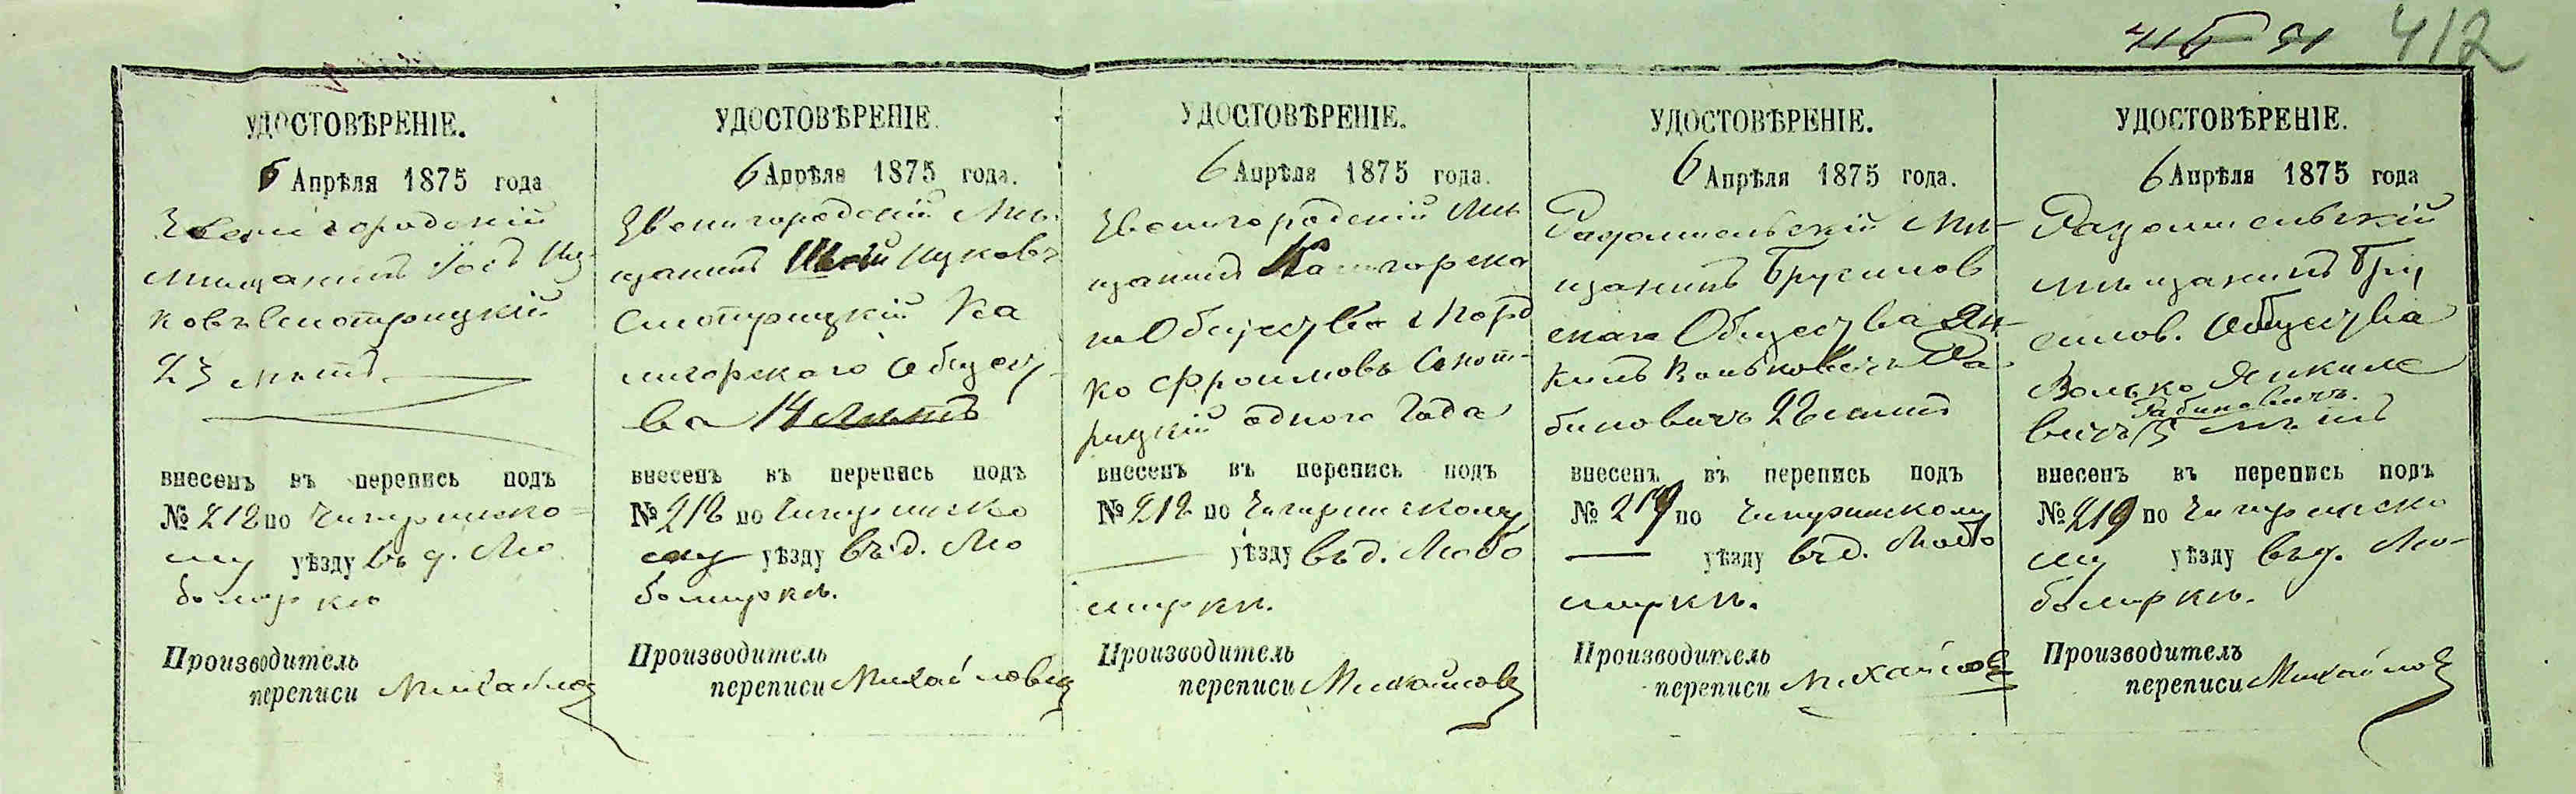 412
УДОСТОВѢРЕНІЕ.
6 Апрѣля 1875 года
Звенигородскій
мищанинъ Іосъ Иц
ковъ Смотрицкій
23 лѣтъ
внесенъ въ перепись подъ
№ 212 по Чигиринско-
му уѣзду въ д. Лю
бомирки
Производитель
переписи Михайлов
УДОСТОВѢРЕНІЕ.
6 Апрѣля 1875 года.
Звенигородскій Мѣ-
щанинъ Ицковъ
Смотрицкій Ка
лигорского Общест
ва 14 лѣтъ
внесенъ въ перепись подъ
№ 212 по Чигиринско
му уѣзду въ д. Лю
бомирки.
Производитель
переписи Михайлов
УДОСТОВѢРЕНІЕ.
6 Апрѣля 1875 года.
Звенигородскій Мѣ
щанинъ Калигорска
го Общества Морд
ко Фроимовъ Смот-
рицкій одного Года
внесенъ въ перепись подъ
№ 212 по Чигиринскому
уѣзду въ д. Любо
мирки.
Производитель
переписи Михайлов
УДОСТОВѢРЕНІЕ.
6 Апрѣля 1875 года.
Радомисльскій Мѣ-
щанинъ Брусилов
скаго Общества Ян-
кель Волькович Ра
бинович 26 лѣтъ
внесенъ въ перепись подъ
№ 219 по Чигиринскому
уѣзду въ д. Любо
мирки.
Производитель
переписи Михайлов
УДОСТОВѢРЕНІЕ.
6 Апрѣля 1875 года
Радомисльскій
мѣщанинъ Бру
силов. Общества
Волько Янкиле
Рабиновичъ.
вичъ лѣтъ
внесенъ въ перепись подъ
№ 219 по Чигиринско
му уѣзду въ д. Лю-
бомирки.
Производитель
переписи Михайлов